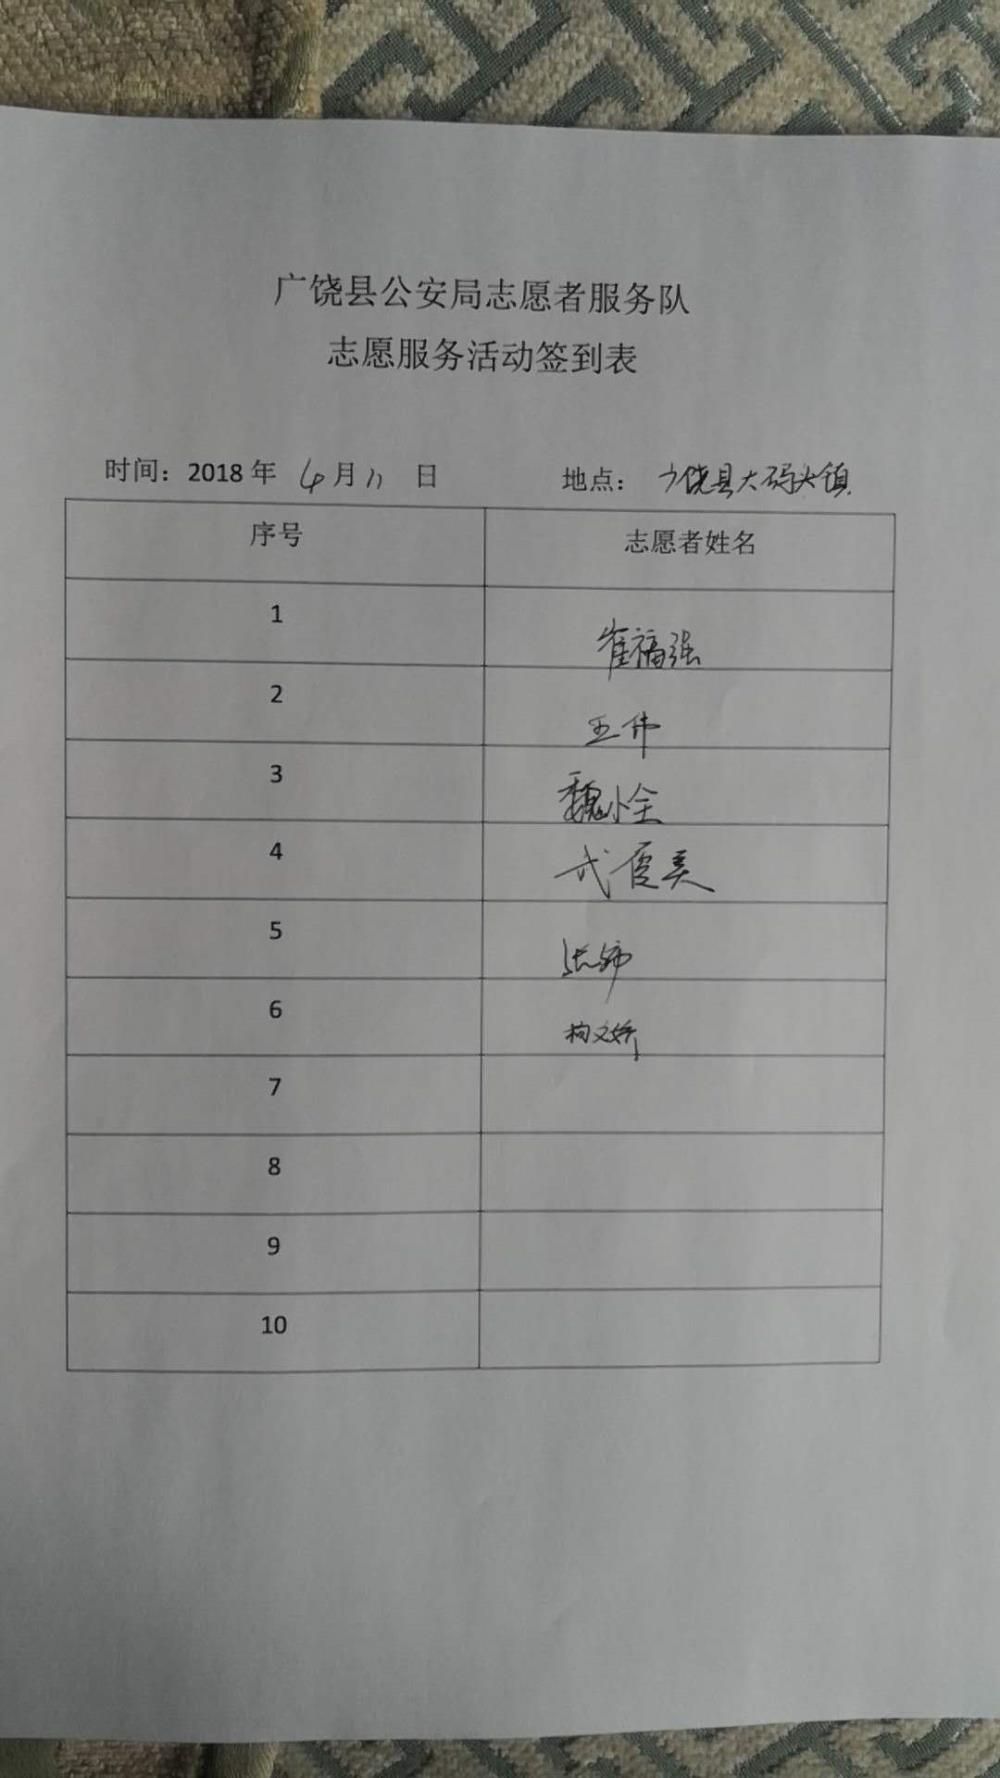 广饶县公安局志愿者服务队
志愿服务活动签到表
时间：2018年 4月11 日 地点：广饶县大码头镇
序号 志愿者姓名
1 崔福强
2 王伟
3 魏小全
4 武
5 张
6 文娇
7
8
9
10